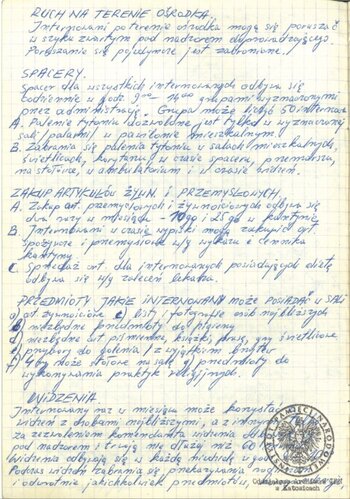 RUCH NA TERENIE OŚRODKA.
Internowani po terenie ośrodka mogą się poruszać
w szyku zwartym pod nadzorem doprowadzającego.
Poruszanie się pojedyncze jest zabronione!
SPACERY.
Spacer dla wszystkich internowanych odbywa się
codziennie w godz 9⁰⁰ 14⁰⁰ grupami wyznaczonymi
przez administrację. Grupa może liczyć 50 internow.
A. Palenie tytoniu dozwolone jest tylko w wyznaczonej
sali / palarni / w pawilonie mieszkalnym.
B. Zabrania się palenia tytoniu w salach mieszkalnych,
świetlicach, korytarzu w czasie spaceru, przemarszu,
na stołówce, w ambulatorium i w czasie widzeń.
ZAKUP ARTYKUŁÓW ŻYWN. I PRZEMYSŁOWYCH
A. Zakup art. przemysłowych i żywnościowych odbywa się
dwa razy w miesiącu - 10go i 25go w kantynie
B. Internowani w czasie wypiski mogą zakupić art.
spożywcze i przemysłowe w/g wykazu i cennika
kantyny.
C. Sprzedaż art. dla internowanych posiadających dietę
odbywa się w/g zaleceń lekarza.
PRZEDMIOTY JAKIE INTERNOWANY MOŻE POSIADAĆ W SALI
a) art. żywnościowe e) listy i fotografie osób najbliższych
b) niezbędne przedmioty do higieny
c) niezbędne art. piśmienne, książki, prasę, gry świetlicowe
d) przybory do golenia / z wyjątkiem brzytew
f) może stosowne na sali przedmioty do
wykonywania praktyk religijnych.
WIDZENIA
Internowany raz w miesiącu może korzystać
widzeń z osobami najbliższymi, a z innymi
za zezwoleniem komendanta widzenia
pod nadzorem i trwają nie dłużej niż 60
Widzenia odbywają się w każdą niedzielę w godz
Podczas widzeń zabrania się przekazywania
i odwrotnie jakichkolwiek przedmiotów,
INSTYTUT PAMIĘCI NARODOWEJ
Oddziałowe Archiwum IPN
w Katowicach